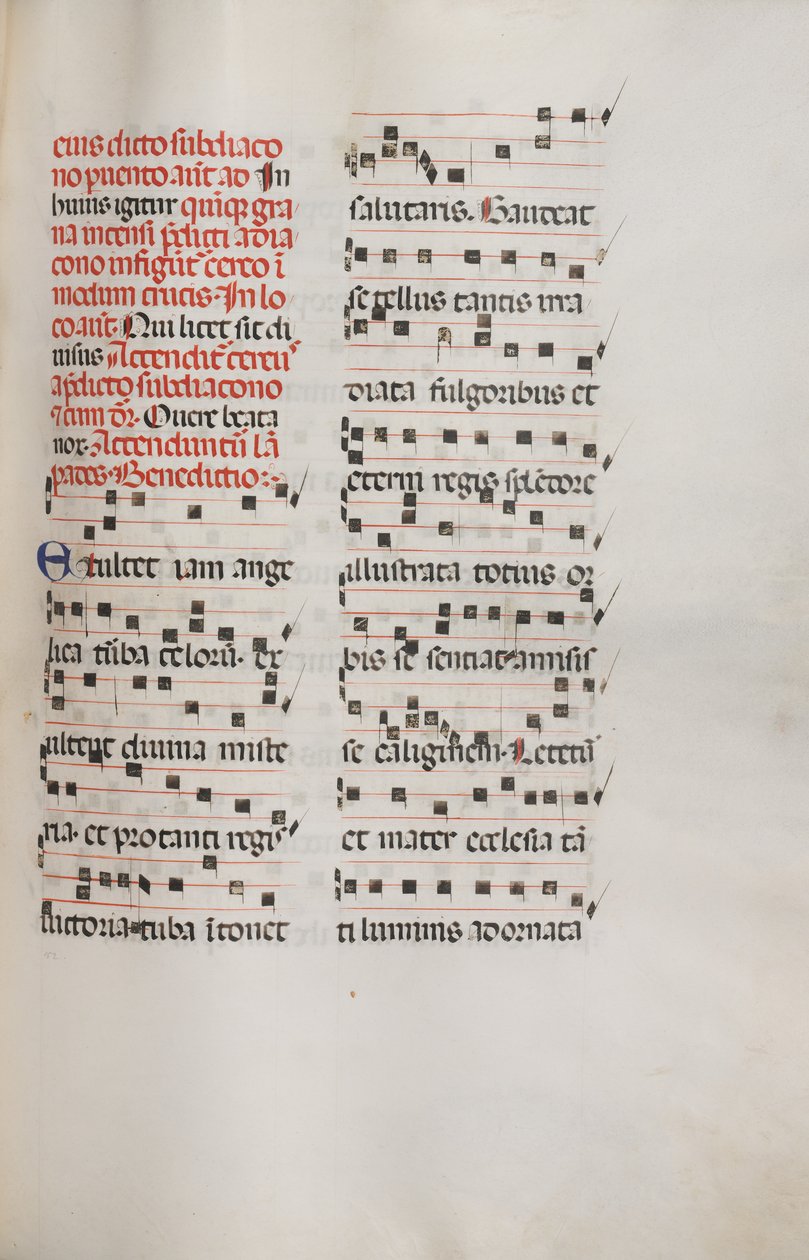 eius dicto subdiaco
no puento aūt ad In
huius igitur quīqꝫ gra
na incensi p̄dicti a dia
cono infigūt̄ cereo ī
modum crucis. In lo
co aūt. Qui licet sit di
uisus Accendit̄ cereū
a p̄dicto subdiacono
⁊ cum dr̄. O uere beata
nox. Accenduntū lā
pades. Benedictio:
Exultet iam ange
lica tūba celorū. ex
ultent diuina miste
ria. et pro tanti regis
uictoria tuba ītonet
salutaris. Gaudeat
se tellus tantis irra
diata fulgoribus et
eterni regis splēdore
illustrata totius or
bis se sentiat amisis
se caliginem. Letetū
et mater ecclesia tā
ti luminis adornata